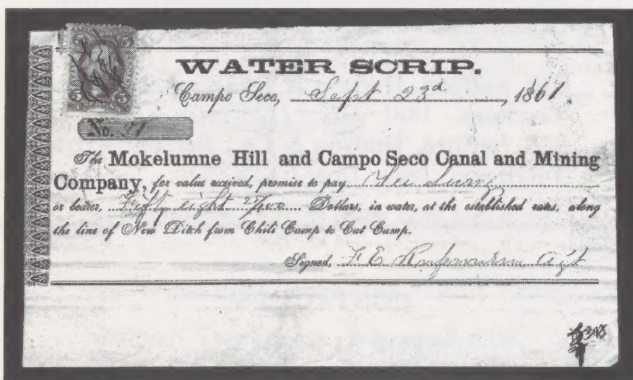 WATER SCRIP.
Campo Seco, Sept 23d, 1861
No. 
The Mokelumne Hill and Campo Seco Canal and Mining
Company, for value received, promise to pay
or bearer, Fifty eight Dollars, in water, at the established rates, along
the line of New Ditch from Chili Camp to Cat Camp.
Signed, F E